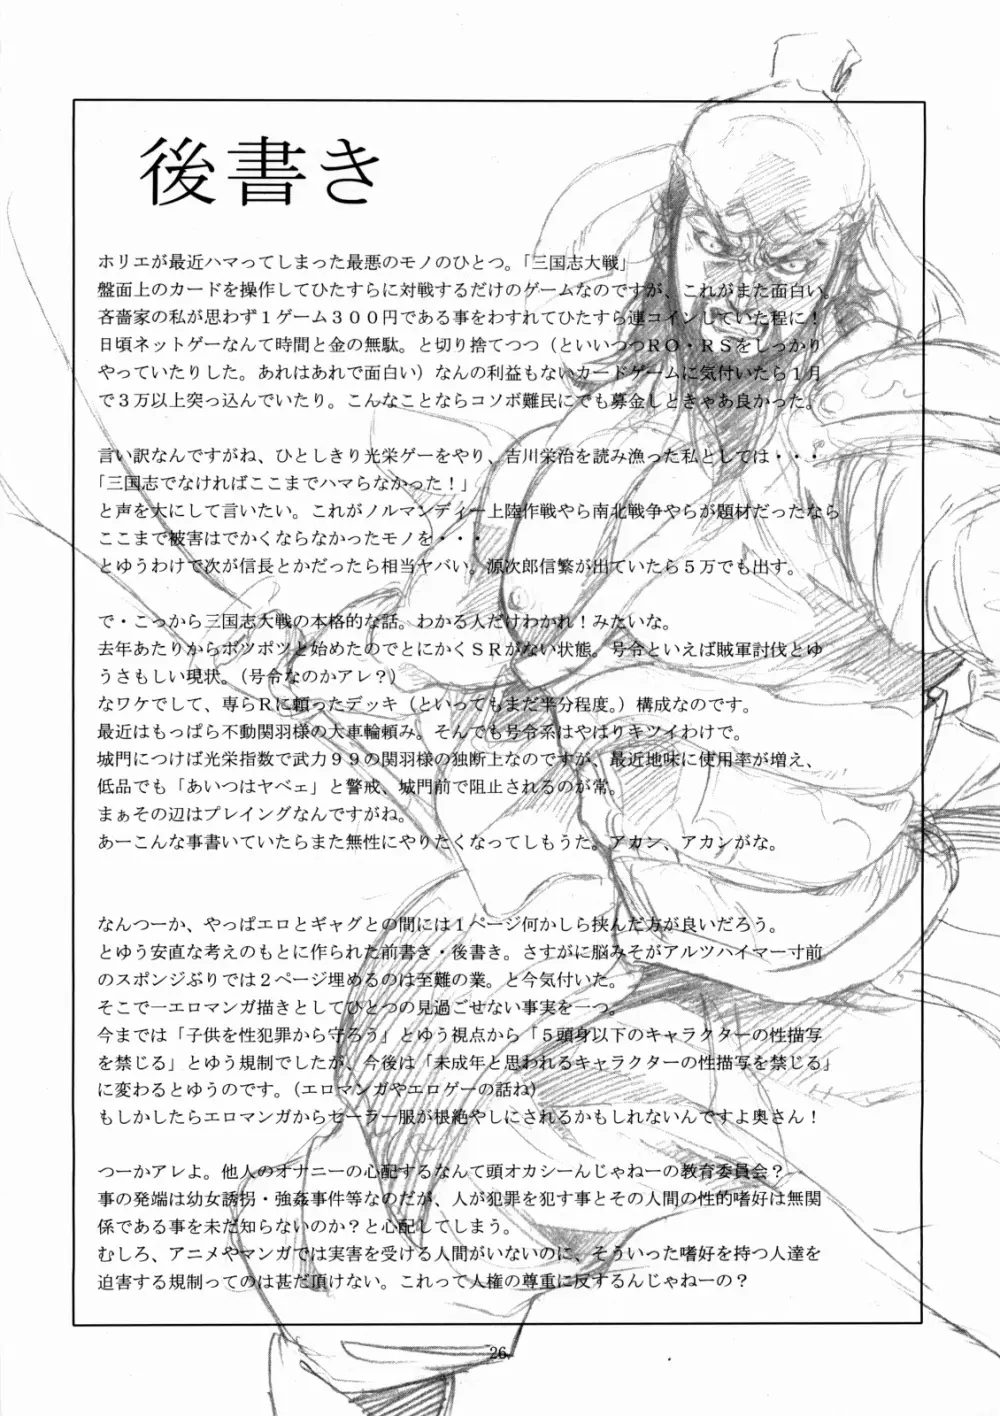 後書き
ホリエが最近ハマってしまった最悪のモノのひとつ。「三国志大戦」
盤面上のカードを操作してひたすらに対戦するだけのゲームなのですが、これがまた面白い。
吝嗇家の私が思わず１ゲーム３００円である事をわすれてひたすら連コインしていた程に！
日頃ネットゲーなんて時間と金の無駄。と切り捨てつつ（といいつつＲＯ・ＲＳをしっかり
やっていたりした。あれはあれで面白い）なんの利益もないカードゲームに気付いたら１月
で３万以上突っ込んでいたり。こんなことならコソボ難民にでも募金しときゃあ良かった。
言い訳なんですがね、ひとしきり光栄ゲーをやり、吉川栄治を読み漁った私としては・・・
「三国志でなければここまでハマらなかった！」
と声を大にして言いたい。これがノルマンディー上陸作戦やら南北戦争やらが題材だったなら
ここまで被害はでかくならなかったモノを・・・
とゆうわけで次が信長とかだったら相当ヤバい。源次郎信繁が出ていたら５万でも出す。
で・こっから三国志大戦の本格的な話。わかる人だけわかれ！みたいな。
去年あたりからボツボツと始めたのでとにかくＳＲがない状態。号令といえば賊軍討伐とゆ
うさもしい現状。（号令なのかアレ？）
なワケでして、専らＲに頼ったデッキ（といってもまだ半分程度。）構成なのです。
最近はもっぱら不動関羽様の大車輪頼み。そんでも号令系はやはりキツイわけで。
城門につけば光栄指数で武力９９の関羽様の独断上なのですが、最近地味に使用率が増え、
低品でも「あいつはヤベェ」と警戒、城門前で阻止されるのが常。
まぁその辺はプレイングなんですがね。
あーこんな事書いていたらまた無性にやりたくなってしもうた。アカン、アカンがな。
なんつーか、やっぱエロとギャグとの間には１ページ何かしら挟んだ方が良いだろう。
とゆう安直な考えのもとに作られた前書き・後書き。さすがに脳みそがアルツハイマー寸前
のスポンジぶりでは２ページ埋めるのは至難の業。と今気付いた。
そこで一エロマンガ描きとしてひとつの見過ごせない事実を一つ。
今までは「子供を性犯罪から守ろう」とゆう視点から「５頭身以下のキャラクターの性描写
を禁じる」とゆう規制でしたが、今後は「未成年と思われるキャラクターの性描写を禁じる」
に変わるとゆうのです。（エロマンガやエロゲーの話ね）
もしかしたらエロマンガからセーラー服が根絶やしにされるかもしれないんですよ奥さん！
つーかアレよ。他人のオナニーの心配するなんて頭オカシーんじゃねーの教育委員会？
事の発端は幼女誘拐・強姦事件等なのだが、人が犯罪を犯す事とその人間の性的嗜好は無関
係である事を未だ知らないのか？と心配してしまう。
むしろ、アニメやマンガでは実害を受ける人間がいないのに、そういった嗜好を持つ人達を
迫害する規制ってのは甚だ頂けない。これって人権の尊重に反するんじゃねーの？
26